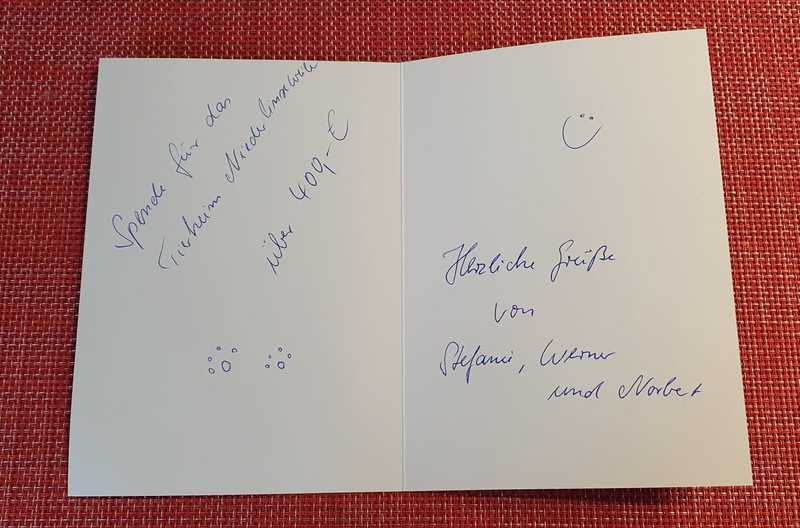 Spende für das
Tierheim Niederlinxweiler
über 400,-€
Herzliche Grüße
von
Stefanie, Werner
und Norbert